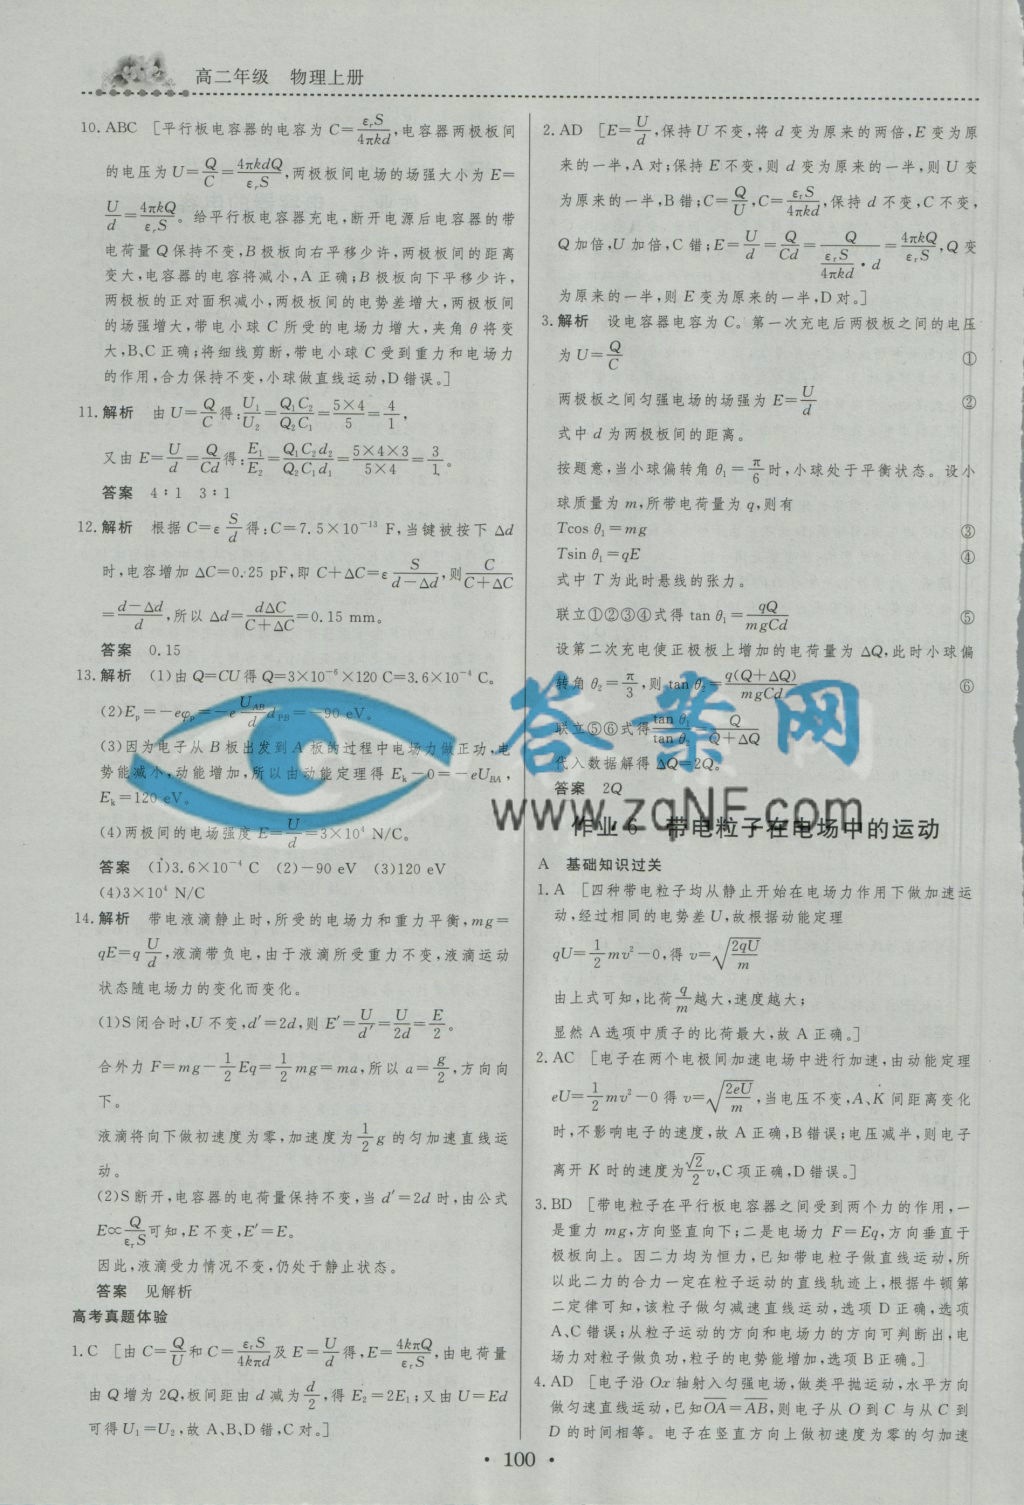 高二年级　物理上册
10. ABC　[平行板电容器的电容为 C=εᵣS/4πkd,电容器两极板间
的电压为 U=Q/C=4πkdQ/εᵣS,两极板间电场的场强大小为 E=
U/d=4πkQ/εᵣS。给平行板电容器充电,断开电源后电容器的带
电荷量 Q 保持不变,B 极板向右平移少许,两极板间的距离
变大,电容器的电容将减小,A 正确;B 极板向下平移少许,
两极板的正对面积减小,两极板间的电势差增大,两极板间
的场强增大,带电小球 C 所受的电场力增大,夹角 θ 将变
大,B、C 正确;将细线剪断,带电小球 C 受到重力和电场力
的作用,合力保持不变,小球做直线运动,D 错误。]
11. 解析　由 U=Q/C得:U₁/U₂=Q₁C₂/Q₂C₁=5×4/5=4/1,
又由 E=U/d=Q/Cd得:E₁/E₂=Q₁C₂d₂/Q₂C₁d₁=5×4×3/5×4=3/1。
答案　4∶1　3∶1
12. 解析　根据 C=ε S/d得:C=7.5×10⁻¹³ F,当键被按下 Δd
时,电容增加 ΔC=0.25 pF,即 C+ΔC=ε S/(d-Δd),则C/(C+ΔC)
=(d-Δd)/d,所以 Δd=dΔC/(C+ΔC)=0.15 mm。
答案　0.15
13. 解析　(1)由 Q=CU 得 Q=3×10⁻⁶×120 C=3.6×10⁻⁴ C。
(2)Eₚ=-eφₚ=-e U_AB/d d_PB=-90 eV。
(3)因为电子从 B 板出发到 A 板的过程中电场力做正功,电
势能减小,动能增加,所以由动能定理得 Eₖ-0=-eU_BA,
Eₖ=120 eV。
(4)两极板间的电场强度 E=U/d=3×10⁴ N/C。
答案　(1)3.6×10⁻⁴ C　(2)-90 eV　(3)120 eV
(4)3×10⁴ N/C
14. 解析　带电液滴静止时,所受的电场力和重力平衡,mg=
qE=q U/d,液滴带负电,由于液滴所受重力不变,液滴运动
状态随电场力的变化而变化。
(1)S 闭合时,U 不变,d′=2d,则 E′=U/d′=U/2d=E/2。
合外力 F=mg-1/2 Eq=1/2 mg=ma,所以 a=g/2,方向向
下。
液滴将向下做初速度为零,加速度为 1/2 g 的匀加速直线运
动。
(2)S 断开,电容器的电荷量保持不变,当 d′=2d 时,由公式
E∝Q/εᵣS可知,E 不变,E′=E。
因此,液滴受力情况不变,仍处于静止状态。
答案　见解析
高考真题体验
1. C　[由 C=Q/U和 C=εᵣS/4kπd及 E=U/d得,E=4kπQ/εᵣS,由电荷量
由 Q 增为 2Q,板间距由 d 减为 d/2,得 E₂=2E₁;又由 U=Ed
可得 U₁=U₂,故 A、B、D 错,C 对。]
2. AD　[E=U/d,保持 U 不变,将 d 变为原来的两倍,E 变为原
来的一半,A 对;保持 E 不变,则 d 变为原来的一半,则 U 变
为原来的一半,B 错;C=Q/U,C=εᵣS/4πkd,保持 d 不变,C 不变,
Q 加倍,U 加倍,C 错;E=U/d=Q/Cd=Q/(εᵣS/4πkd·d)=4πkQ/εᵣS,Q 变
为原来的一半,则 E 变为原来的一半,D 对。]
3. 解析　设电容器电容为 C。第一次充电后两极板之间的电压
为 U=Q/C　①
两极板之间匀强电场的场强为 E=U/d　②
式中 d 为两极板间的距离。
按题意,当小球偏转角 θ₁=π/6时,小球处于平衡状态。设小
球质量为 m,所带电荷量为 q,则有
Tcos θ₁=mg　③
Tsin θ₁=qE　④
式中 T 为此时悬线的张力。
联立①②③④式得 tan θ₁=qQ/mgCd　⑤
设第二次充电使正极板上增加的电荷量为 ΔQ,此时小球偏
转角 θ₂=π/3,则 tan θ₂=q(Q+ΔQ)/mgCd　⑥
联立⑤⑥式得tan θ₁/tan θ₂=Q/(Q+ΔQ)
代入数据解得 ΔQ=2Q。
答案　2Q
答案网
www.zqNF.com
作业 6　带电粒子在电场中的运动
A　基础知识过关
1. A　[四种带电粒子均从静止开始在电场力作用下做加速运
动,经过相同的电势差 U,故根据动能定理
qU=1/2 mv²-0,得 v=√(2qU/m)
由上式可知,比荷q/m越大,速度越大;
显然 A 选项中质子的比荷最大,故 A 正确。]
2. AC　[电子在两个电极间加速电场中进行加速,由动能定理
eU=1/2 mv²-0 得 v=√(2eU/m),当电压不变,A、K 间距离变化
时,不影响电子的速度,故 A 正确,B 错误;电压减半,则电子
离开 K 时的速度为√2/2 v,C 项正确,D 错误。]
3. BD　[带电粒子在平行板电容器之间受到两个力的作用,一
是重力 mg,方向竖直向下;二是电场力 F=Eq,方向垂直于
极板向上。因二力均为恒力,已知带电粒子做直线运动,所
以此二力的合力一定在粒子运动的直线轨迹上,根据牛顿第
二定律可知,该粒子做匀减速直线运动,选项 D 正确,选项
A、C 错误;从粒子运动的方向和电场力的方向可判断出,电
场力对粒子做负功,粒子的电势能增加,选项 B 正确。]
4. AD　[电子沿 Ox 轴射入匀强电场,做类平抛运动,水平方向
做匀速直线运动,已知O̅A̅=A̅B̅,则电子从 O 到 C 与从 C 到
D 的时间相等。电子在竖直方向上做初速度为零的匀加速
• 100 •